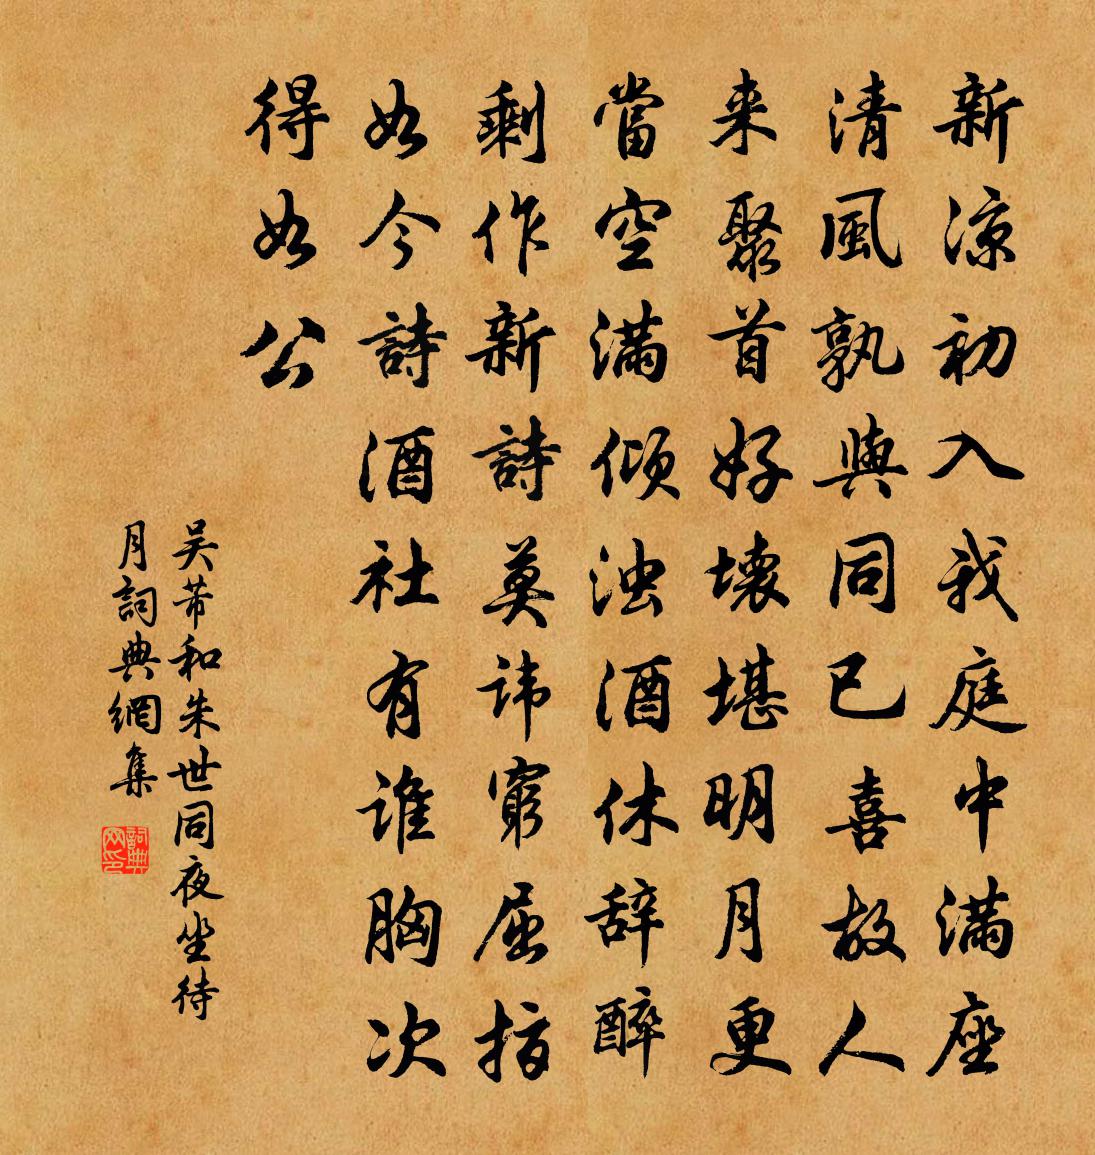 新涼初入我庭中滿座
清風孰與同已喜故人
来聚首好壊堪明月更
當空滿倾浊酒休辞醉
剩作新詩莫讳窮屈指
如今詩酒社有谁胸次
得如公
吴芾和朱世同夜坐待
月詞典網集
詞典网印